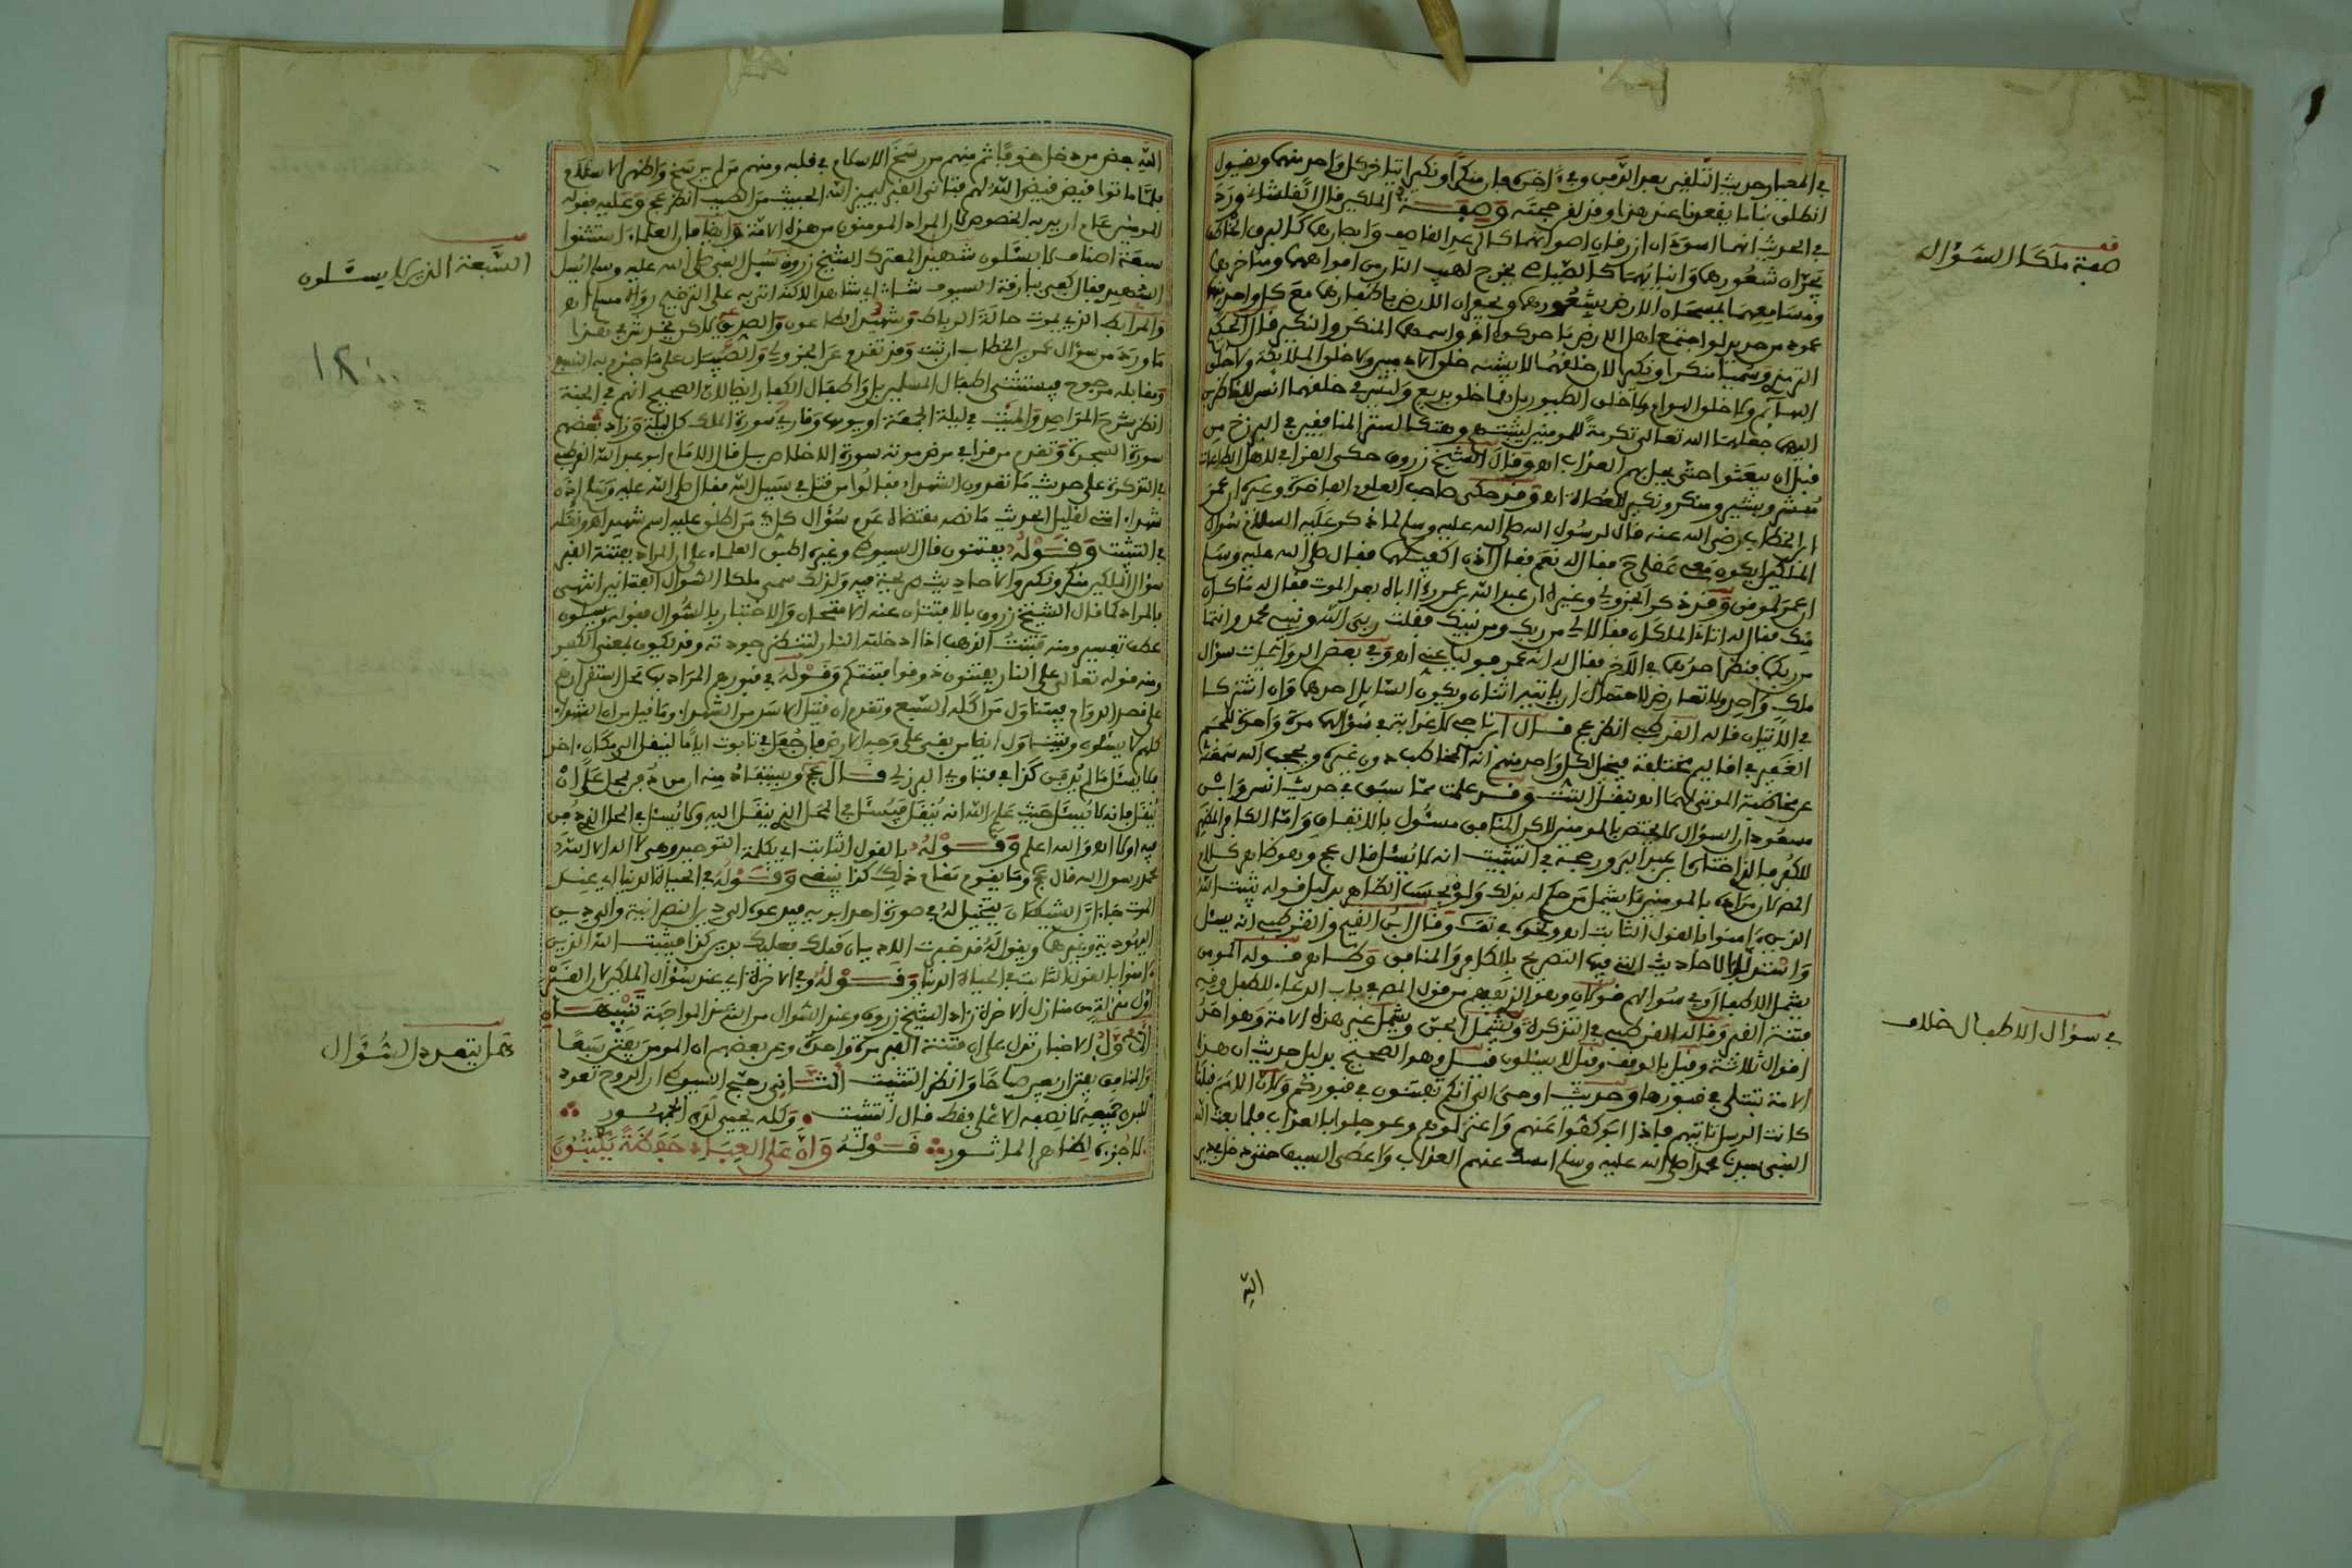 في المعيار حديث التلقين بعد الدفن وفي ءاخره فإن منكرا ونكيرا يتأخر كل واحد منهما ويقول
انطلق بنا ما يقعدنا عند هذا وقد لقن حجته وصفة الملكين قال القلشاني ورد
في الحديث انهما اسودان ازرقان اصواتهما كالرعد القاصف وابصارهما كالبرق الخاطف
يجران شعورهما وانيابهما كالصياصي يخرج لهب النار من افواههما ومناخرهما
ومسامعهما يمسحان الارض بشعورهما ويحفران الارض باظفارهما مع كل واحد منهما
عمود من حديد لو اجتمع اهل الارض ما حركوه اه واسمهما المنكر والنكير قال الحكيم
الترمذي وسميا منكرا ونكيرا لان خلقهما لا يشبه خلق الادميين ولا خلق الملائكة ولا خلق
البهائم ولا خلق الهوام ولا خلق الطيور بل هما خلق بديع وليس في خلقهما انس للناظرين
اليهما جعلهما الله تعالى تكرمة للمومنين ليثبتهم وهتكا لستر المنافقين في البرزخ من
قبل ان يبعثوا حتى يحل بهم العذاب اه وقال الشيخ زروق حكى الغزالي لاهل الطاعات
مبشر وبشير ومنكر ونكير للعصاة اه وقد حكى صاحب العلوم الفاخرة وغيره ان عمر
ابن الخطاب رضي الله عنه قال لرسول الله صلى الله عليه وسلم لما ذكر عليه السلام سؤال
الملكين ايكون معي عقلي ح فقال له نعم فقال اذن اكفيكهما فقال صلى الله عليه وسلم
ان عمر لموفق وقد ذكر الجزولي وغيره ان عبد الله بن عمر رءا اباه بعد الموت فقال له ما كان
منك فقال له اتاني الملكان فقالا لي من ربك ومن نبيك فقلت ربي الله ونبيي محمد وانتما
من ربكما فنظر احدهما في الاخر فقال له انه عمر فوليا عني اه وفي بعض الروايات سؤال
ملك واحد ولا تعارض لاحتمال ان ياتيه اثنان ويكون السايل احدهما وان اشتركا
في الاتيان قاله القرطبي انظر عج قال ابن ناجي لا غرابة في سؤالهما مرة واحدة للجم
الغفير في اقاليم مختلفة فيخيل لكل واحد منهم انه المخاطب دون غيره ويحجب الله سمعه
عن مخاطبة الموتى لهما اه ونقل التتـ وقد علمت مما سبق في حديث انس وابن
مسعود ان السؤال لا يختص بالمومنين لاكن المنافق مسئول بالاتفاق واما الكافر المظهر
للكفر فالذي اختار ابن عبد البر ورجحه في التثبيت انه لا يسئل قال عج وهو ظاهر كلام
المص لان مراده بالمومنين ما يشمل من حكم له بذلك ولو بحسب الظاهر بدليل قوله يثبت الله
الذين ءامنوا بالقول الثابت اه ونحوه في تف وقال ابن القيم والقرطبي انه يسئل
واستدلا بالاحاديث التي فيها التصريح بالكافر والمنافق وظاهر قوله المومن
يشمل الاطفال وفي سؤالهم قولان وهو الذي يفهم من قول المص في باب الدعاء للطفل وقه
فتنة القبر وقاله القرطبي في التذكرة ويشمل الجن ويشمل غير هذه الامة وهو احد
اقوال ثلاثة وقيل بالوقف وقيل لا يسئلون قيل وهو الصحيح بدليل حديث ان هذه
الامة تبتلى في قبورها وحديث اوحى الي انكم تفتنون في قبوركم وكان الامم قبلنا
كانت الرسل تاتيهم فإذا ابو كفوا عنهم واعتزلوهم وعوجلوا بالعذاب فلما بعث الله
النبي سيدنا محمد صلى الله عليه وسلم امسك عنهم العذاب واعطي السيف حتى دخل في دين
الله
صفة ملكا السؤال
في سؤال الاطفال خلاف
الله بعض من دخل خوفا ثم منهم من رسخ الاسلام في قلبه ومنهم من لم يرسخ واظهر الاسلام
فلما ماتوا قيض الله لهم فتاني القبر ليميز الله الخبيث من الطيب انظر عج وعليه فقوله
المومنين عام اريد به الخصوص لان المراد المومنون من هذه الامة وايضا فإن العلماء استثنوا
سبعة اصناف لا يسئلون شهيد المعترك الشيخ زروق سئل النبي صلى الله عليه وسلم ايسئل
الشهيد فقال كفى ببارقة السيوف شاهدا رواه مسلم اه
والمرابط الذي يموت حالة الرباط وشهيد الطاعون والصديق لاكن يخدش في هذا
ما ورد من سؤال عمر بن الخطاب ان ثبت وقد تقدم عن الجزولي والصبيان على ما جزم به النسفي
ومقابله مرجوح فيستثنى اطفال المسلمين بل واطفال الكفار ايضا لان الصحيح انهم في الجنة
انظر شرح المراصد والميت في ليلة الجمعة او يومها وقارئ سورة الملك كل ليلة وزاد بعضهم
سورة السجدة وتقدم من قرأ في مرض موته سورة الاخلاص بل قال الامام ابو عبد الله القرطبي
في التذكرة على حديث ما تعدون الشهداء فقالوا من قتل في سبيل الله فقال صلى الله عليه وسلم ان
شهداء امتي لقليل الحديث ما نصه مقتضاه عدم سؤال كل من اطلق عليه اسم شهيد اه ونقله
في التثبيت وقوله يفتنون قال السيوطي وغيره اطبق العلماء على ان المراد بفتنة القبر
سؤال الملكين منكر ونكير والاحاديث صريحة فيه ولذلك سمي ملكا السؤال الفتانين انتهى
بالمراد كما قال الشيخ زروق بالافتتان عنه الامتحان والاختبار بالسؤال فقوله ويسئلون
عطف تفسير ومنه فتنت الذهب اذا ادخلته النار لتنظر جودته وقد يكون بمعنى الكفر
ومنه قوله تعالى على النار يفتنون ذوقوا فتنتكم وقوله في قبورهم المراد بها محل استقرارهم
على قصد الدوام فيتناول من اكله السبع وتقدم ان قتيل الاسد من الشهداء وما قيل من ان الشهداء
كلهم لا يسئلون ويتناول ايضا من بقي على وجه الارض فإن جعل في تابوت اياما لينقل الى مكان ءاخر
فلا يسئل ما لم يدفن كذا في فتاوي البرزلي قال عج ويستفاد منه ان من دفن بمحل على ان
ينقل فإنه لا يسئل حيث علم الله انه ينقل فيسئل في المحل الذي ينقل اليه ولا يسئل في المحل الذي دفن
فيه اولا اه والله اعلم وقوله بالقول الثابت اي بكلمة التوحيد وهي لا اله الا الله
محمد رسول الله قال عج وما يقوم مقام ذلك كذا ينبغي وقوله في الحياة الدنيا اي عند
الموت جاء ان الشيطان يتخيل له في صورة احد ابويه فيدعوه الى دين النصرانية والى دين
اليهودية وغيرها ويقول له قد خبرت الاديان قبلك فعليك بدين كذا فيثبت الله الذين
ءامنوا بالقول الثابت في الحياة الدنيا وقوله وفي الاخرة اي عند سؤال الملكين لان القبر
اول منزلة من منازل الاخرة زاد الشيخ زروق وعند السؤال من الله عند المواجهة تنبيهات
الاول الاخبار تدل على ان فتنة القبر مرة واحدة وعن بعضهم ان المومن يفتن سبعا
والمنافق يفتن اربعين صباحا وانظر التثبيت الثاني رجح السيوطي ان الروح تعود
للبدن جميعه لا نصفه الاعلى فقط قال التثبيت وكله يحيى لدى الجمهور
لا جزءه لظاهر الماثور قوله وان على العباد حفظة يكتبون
السبعة الذين لا يسئلون
هل يتعدد السؤال